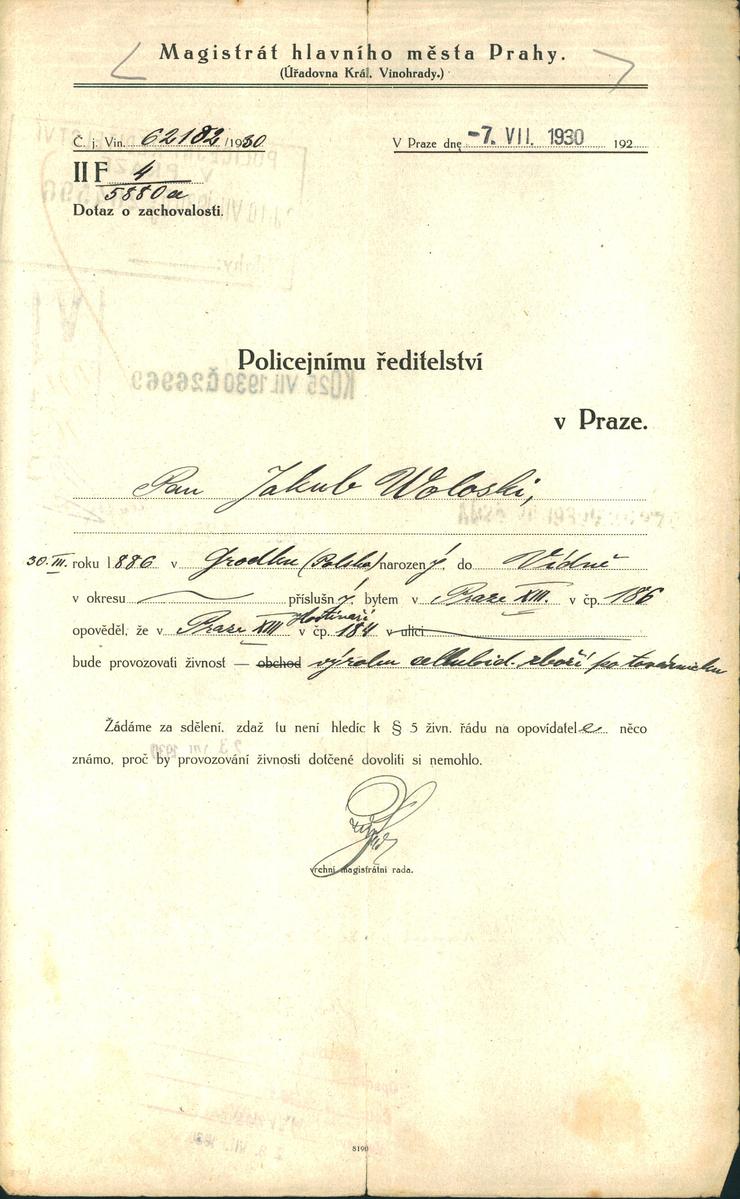 Magistrát hlavního města Prahy.
(Úřadovna Král. Vinohrady.)
Č. j. Vin. 62182/1930
V Praze dne -7. VII. 1930 192
II F 4
5880a
Dotaz o zachovalosti.
Policejnímu ředitelství
v Praze.
Pan Jakub Woloski,
30. III. roku 1886 v Grodku (Polska) narozený, do Vídně
v okresu příslušný, bytem v Praze XIII. v čp. 186
Hostivaři
opověděl, že v Praze XIII v čp. 184 v ulici
bude provozovati živnost — obchod výrobu celluloid. zboží po továrnicku
Žádáme za sdělení, zdaž tu není hledíc k § 5 živn. řádu na opovídatele něco
známo, proč by provozování živnosti dotčené dovoliti si nemohlo.
vrchní magistrátní rada.
8190